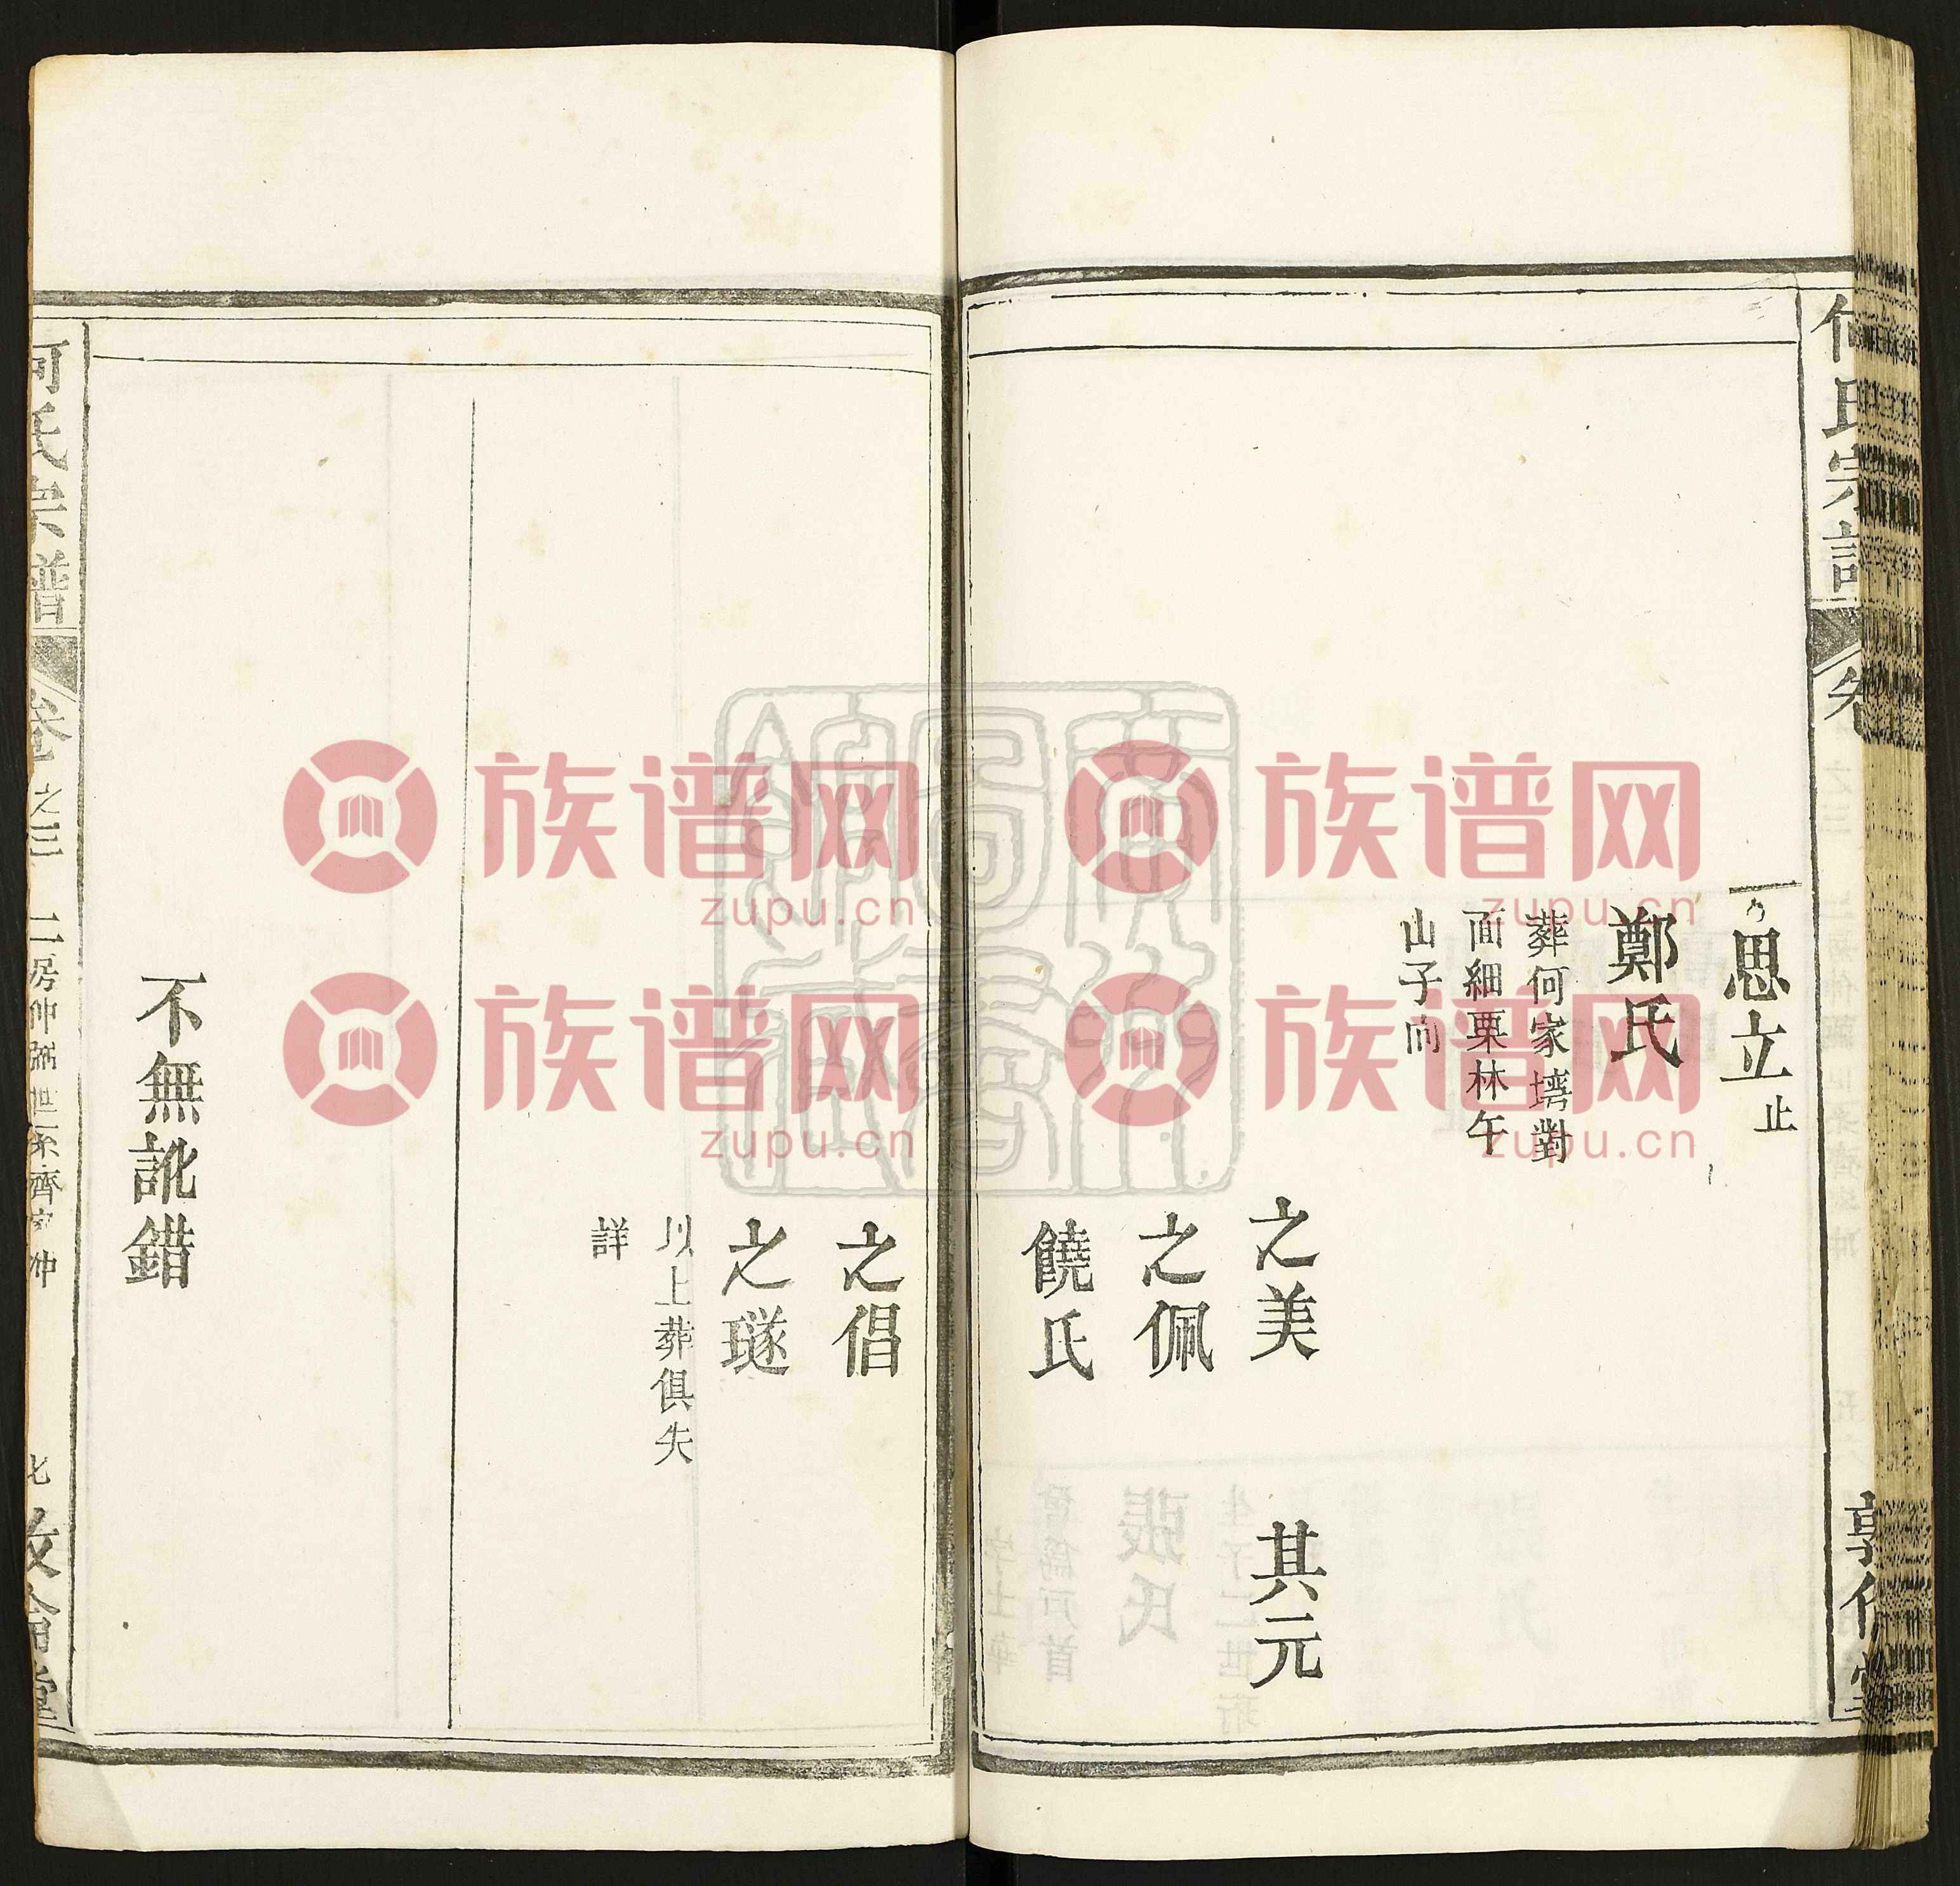 何氏宗譜
思立止
鄭氏
葬何家塆對
面細栗林午
山子向
之美
其元
之佩
饒氏
之倡
之璲
以上葬俱失
詳
不無訛錯
何氏宗譜
卷之三
二房仲弼世系齊家仲
七
敦倫堂
族谱网
zupu.cn
族谱网
zupu.cn
族谱网
zupu.cn
族谱网
zupu.cn